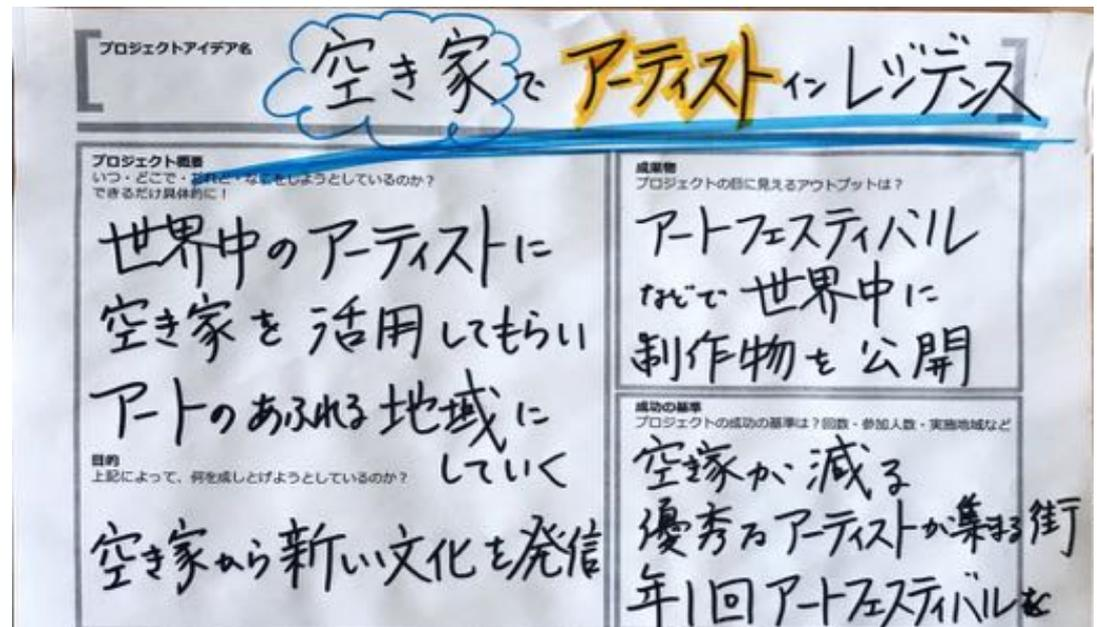 プロジェクトアイデア名
空き家でアーティストインレジデンス
プロジェクト概要
いつ・どこで・だれと・なにをしようとしているのか?
できるだけ具体的に!
世界中のアーティストに
空き家を活用してもらい
アートのあふれる地域に
していく
目的
上記によって、何を成しとげようとしているのか?
空き家から新しい文化を発信
成果物
プロジェクトの目に見えるアウトプットは?
アートフェスティバル
などで世界中に
制作物を公開
成功の基準
プロジェクトの成功の基準は?回数・参加人数・実施地域など
空き家が減る
優秀なアーティストが集まる街
年1回アートフェスティバルを